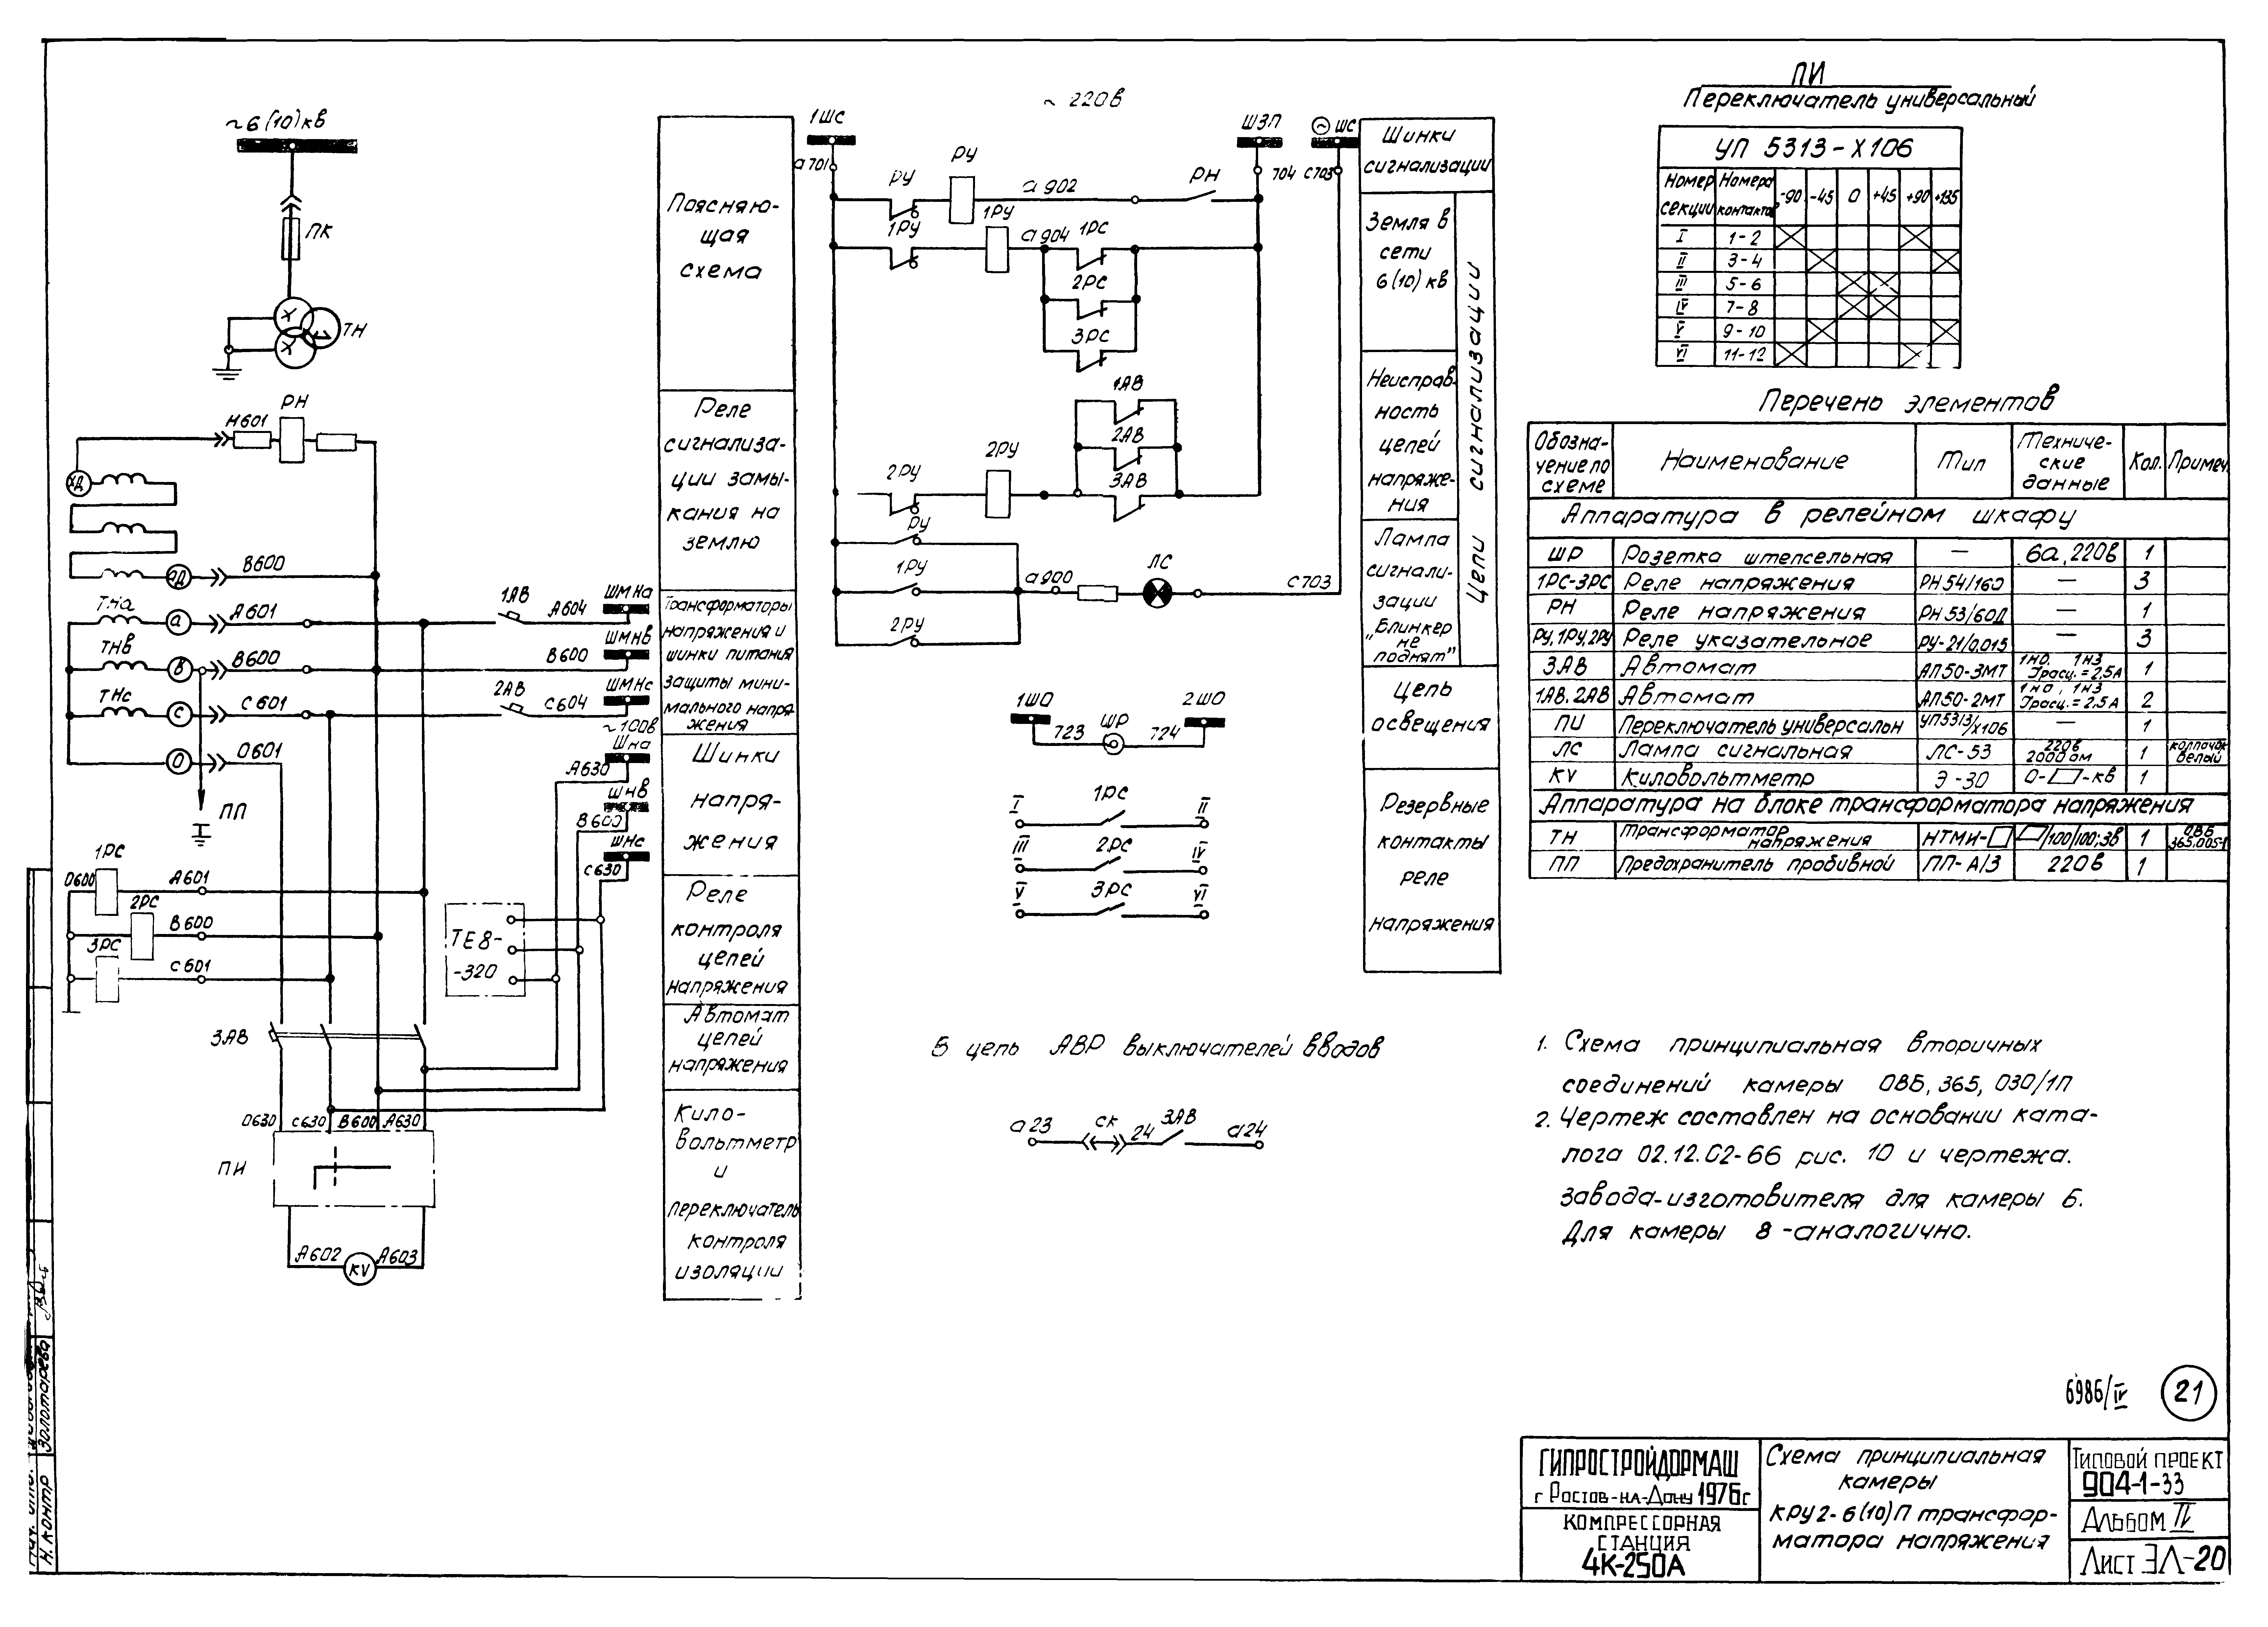 ~6(10)кв
ПК
ТН
РН
Н601
ХД
аД
В600
ТНа
а
А601
1АВ
А604
ШМНа
ТНв
в
В600
В600
ШМНв
ТНс
с
С601
2АВ
С604
ШМНс
~100в
О
О601
ШНа
А630
ШНв
В600
ШНс
С630
ПП
1РС
О600
А601
2РС
В600
3РС
С601
ТЕ8-
-320
3АВ
О630 С630 В600 А630
ПИ
А602
КV
А603
Поясняю-
щая
схема
Реле
сигнализа-
ции замы-
кания на
землю
Трансформаторы
напряжения и
шинки питания
защиты мини-
мального напря
жения
Шинки
напря-
жения
Реле
контроля
цепей
напряжения
Автомат
цепей
напряжения
Кило-
вольтметр
и
переключатель
контроля
изоляции
~ 220в
1ШС
ШЗП
ШС
а701
704
С703
РУ
РУ
а902
РН
1РУ
1РУ
а904
1РС
2РС
3РС
1АВ
2АВ
3АВ
2РУ
2РУ
РУ
1РУ
2РУ
а900
ЛС
С703
1ШО
723
ШР
724
2ШО
I
1РС
II
III
2РС
IV
V
3РС
VI
Шинки
сигнализации
Земля в
сети
6(10)кв
Неисправ-
ность
цепей
напряже-
ния
Лампа
сигнали-
зации
„Блинкер
не
поднят"
Цепи сигнализации
Цепь
освещения
Резервные
контакты
реле
напряжения
В цепь АВР выключателей вводов
а23
ск
24
3АВ
а24
ПИ
Переключатель универсальный
УП 5313-Х106
Номер секции Номера контактов -90 -45 0 +45 +90 +135
I 1-2
II 3-4
III 5-6
IV 7-8
V 9-10
VI 11-12
Перечень элементов
Обозна-
чение по
схеме
Наименование
Тип
Техниче-
ские
данные
Кол.
Примеч.
Аппаратура в релейном шкафу
ШР Розетка штепсельная — 6а,220в 1
1РС-3РС Реле напряжения РН54/160 — 3
РН Реле напряжения РН53/60Д — 1
РУ,1РУ,2РУ Реле указательное РУ-21/0,015 — 3
3АВ Автомат АП50-3МТ 1но. 1нз Iрасц.=2,5А 1
1АВ.2АВ Автомат АП50-2МТ 1но, 1нз Iрасц.=2,5А 2
ПИ Переключатель универсальн УП5313/Х106 — 1
ЛС Лампа сигнальная ЛС-53 220в 2000 ом 1 колпачок белый
КV Киловольтметр Э-30 0-▭-кв 1
Аппаратура на блоке трансформатора напряжения
ТН Трансформатор напряжения НТМИ-□ ▭/100/100:3в 1
ПП Предохранитель пробивной ПП-А/3 220в 1
1. Схема принципиальная вторичных
соединений камеры ОВБ, 365, 030/1П
2. Чертеж составлен на основании ката-
лога 02.12.02-66 рис. 10 и чертежа.
завода-изготовителя для камеры 6.
Для камеры 8-аналогично.
6986/IV
21
ГИПРОСТРОЙДОРМАШ
г Ростов-на-Дону 1976г
КОМПРЕССОРНАЯ
СТАНЦИЯ
4К-250А
Схема принципиальная
камеры
КРУ2-6(10)П трансфор-
матора напряжения
Типовой проект
904-1-33
Альбом IV
Лист ЭЛ-20
Н. контр
Золотарева